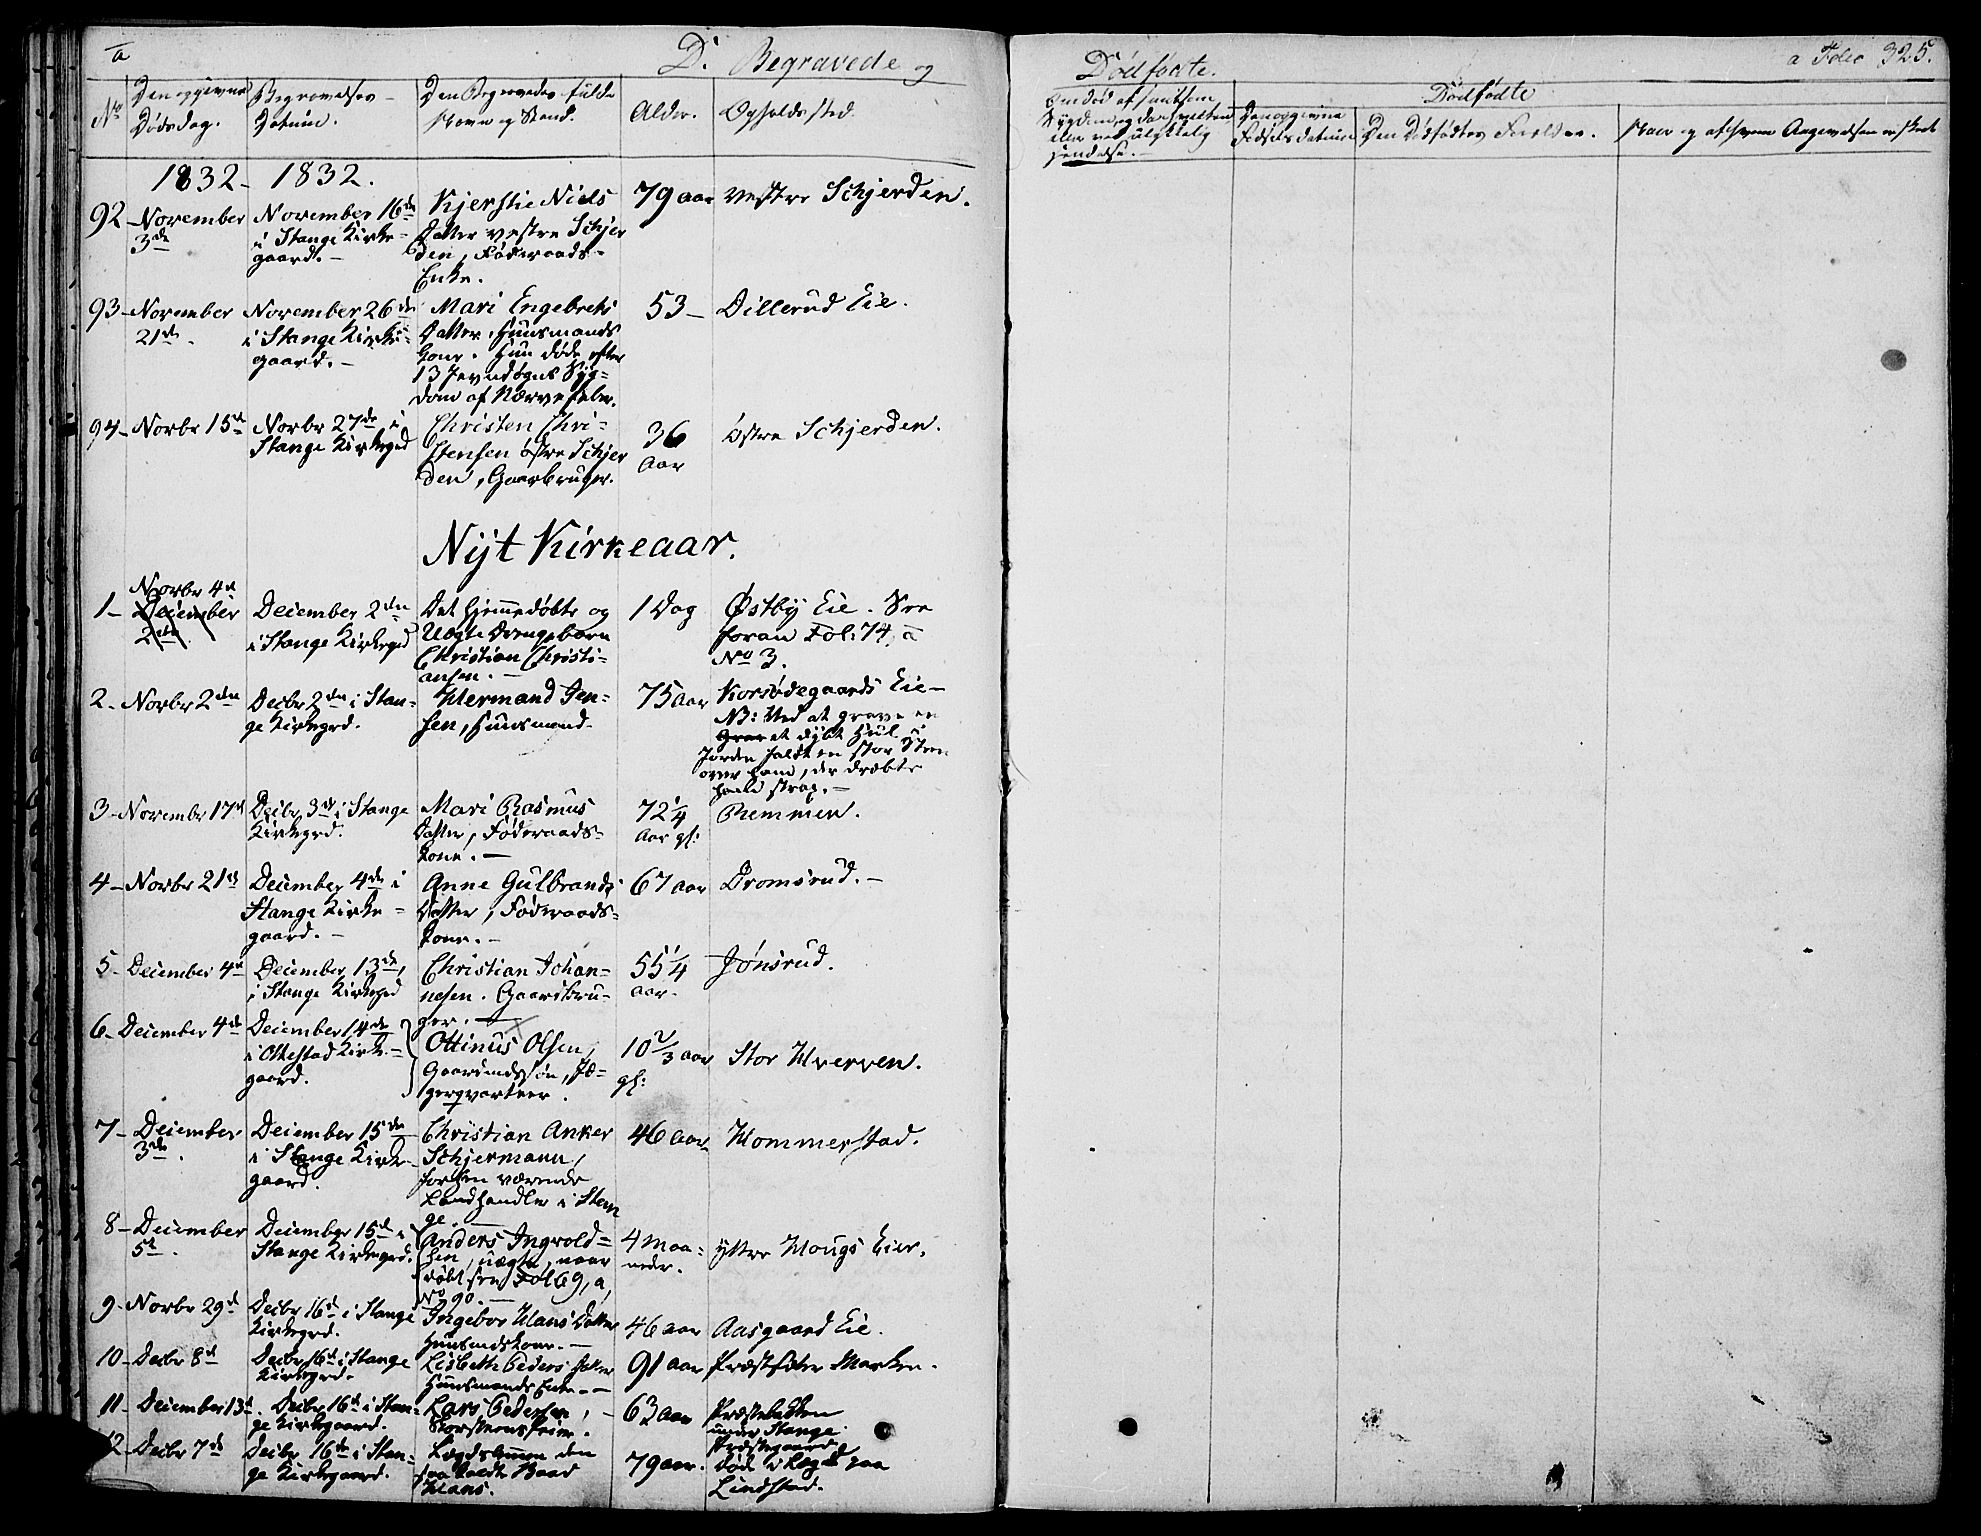 a
D. Begravede og
No
Den opgivne Dødsdag.
Begravelses-Datum.
Den Begravedes fulde Navn og Stand.
Alder.
Opholdssted.
1832- 1832.
92
November 3de
November 16de i Stange Kirke=gaard.-
Kjerstie Niels Datter vestre Schjerden, Føderaads-Enke.
79 aar
vestre Schjerden.
93-
November 21de.
November 26de i Stange Kirke=gaard.-
Mari Engebrets Datter, Huusmands Kone. Hun døde efter 13 Jevndøgns Syg=dom af Nervefeber.
53-
Dillerud Eie.
94-
Novbr 15de
Novbr 27de i Stange Kirkegrd
Christen Chri=stensen østre Schjerden, Gaarbruger.
36 Aar
Østre Schjerden.
Nijt Kirkeaar.
1-
Novbr 4de
December 2den
December 2den i Stange Kirkegrd
Det hjemmedøbte og Uægte Drengebarn Christian Christi=ansen.-
1 Dag
Østby Eie. See foran Fol: 74, a No 3.
2-
Novbr 2den
Decbr 2den i Stan=ge Kirkegrd.
Hermand Jen=sen, Huusmand.
75 aar
Korsødegaards Eie- NB: Ved at grave en Grav et dybt Huul i Jorden faldt en stor Steen over ham, der dræbte ham strax.-
3-
Novembr 17de
Decbr 3de i Stange Kirkegrd.
Mari Rasmus Datter, Føderaads=kone.-
72 1/4 Aar gl:
Remmen.
4-
Novbr 21de
December 4de i Stange Kirke=gaard.-
Anne Gulbrands Datter, Føderaads=kone.-
67 aar
Dromsrud.-
5-
December 4de
December 13de, i Stange Kirkegrd
Christian Johan=nesen. Gaardbru=ger.-
55 1/4 aar.
Jønsrud.
6-
December 4de
December 14de i Ottestad Kirke=gaard.
Ottinus Olsen, Gaardmdssøn, Jægerqvarteer.
10 2/3 aar gl:
Stor Hverven.
7-
December 3de.
December 15de i Stange Kirke=gaard.
Christian Anker Schjermann, forhen værende Landhandler i Stange.-
46 aar
Hommerstad.
8-
December 5te.
December 15de i Stange Kirkegrd.
Anders Ingvold=sen, uægte, naar døbt see Fol 69, a, No 90.-
4 maa=neder.
yttre Hougs Eier.
9-
Novbr 29de
Decbr 16de i Stange Kirkegrd.
Ingebor Hans Datter Huusmdskone.-
46 aar
Aasgaard Eie.
10-
Decbr 8de
Decbr 16de i Stange Kirkegrd.
Lisbeth Peders Datter Huusmands Enke.-
91 aar
Præstsæter Marken.
11-
December 13de.
Decbr 16de i Stan=ge Kirkegaard.
Lars Pedersen, Skorsteensfeier.
63 aar
Præstebakken under Stange Præstegaard
12-
Decbr 7de
Decbr 16de i Stan=ge Kirkegaard.
Lægdslemmen den saa kaldte Hans.
79 aar.
Døde i Lægd paa Lindstad.
Dødfødte.
a Folio 325.
Om død af smitsom Sygdom, og
Den opgivne Fødselsdatum
Dødfødte
Den Dødfødtes Forældre.
Naar og af hvem Angivelsen er skeet